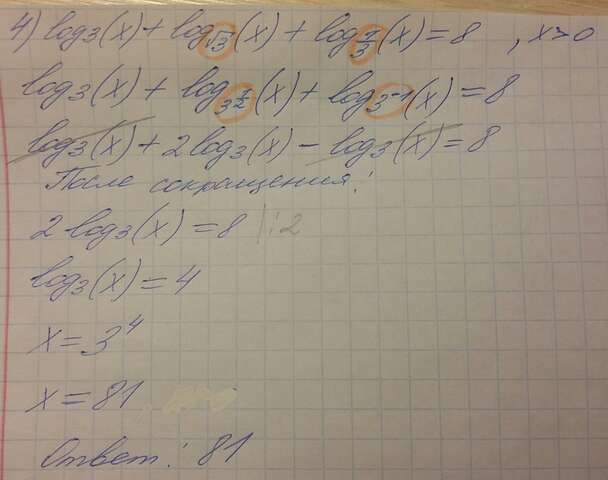 4) log₃(x) + log_√3(x) + log_1/3(x) = 8 , x>0
log₃(x) + log_3^1/2(x) + log_3^-1(x) = 8
log₃(x) + 2log₃(x) - log₃(x) = 8
После сокращения:
2 log₃(x) = 8 |:2
log₃(x) = 4
x = 3⁴
x = 81
Ответ: 81